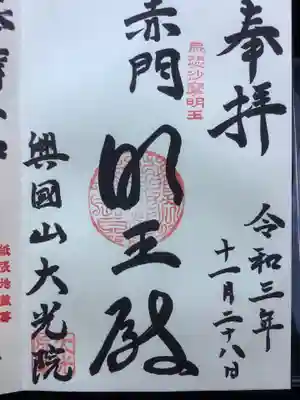 奉拝
令和三年
十一月二十八日
烏瑟沙摩明王
赤門
明王殿
興國山大光院
紙張地蔵尊